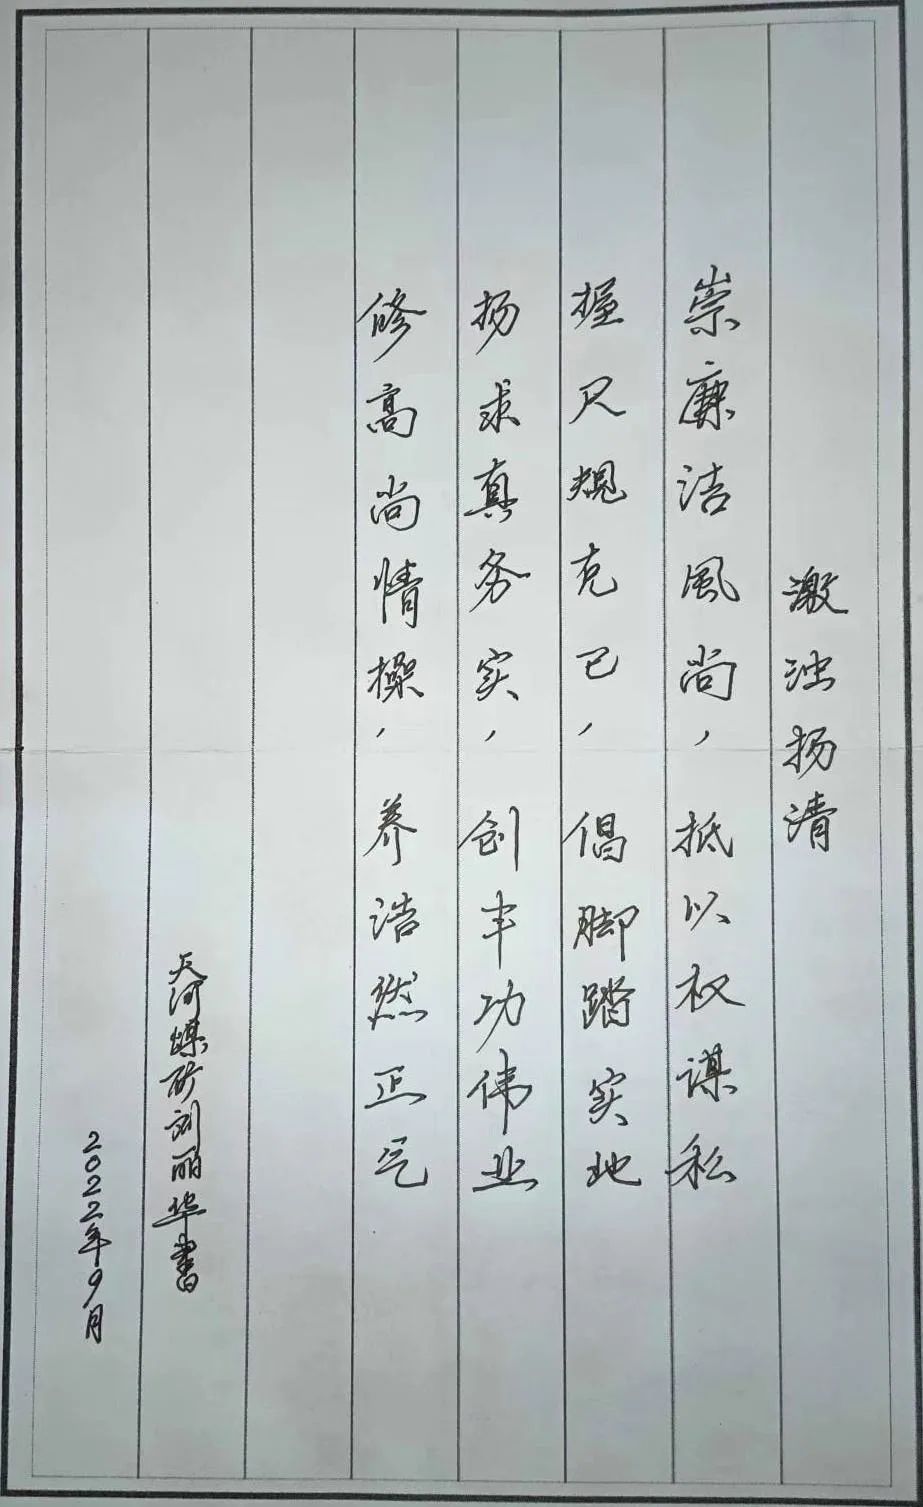 激浊扬清
崇廉洁風尚，抵以权谋私
握尺规克己，倡脚踏实地
扬求真务实，创丰功伟业
修高尚情操，养浩然正气
天河煤矿刘丽华書
2022年9月